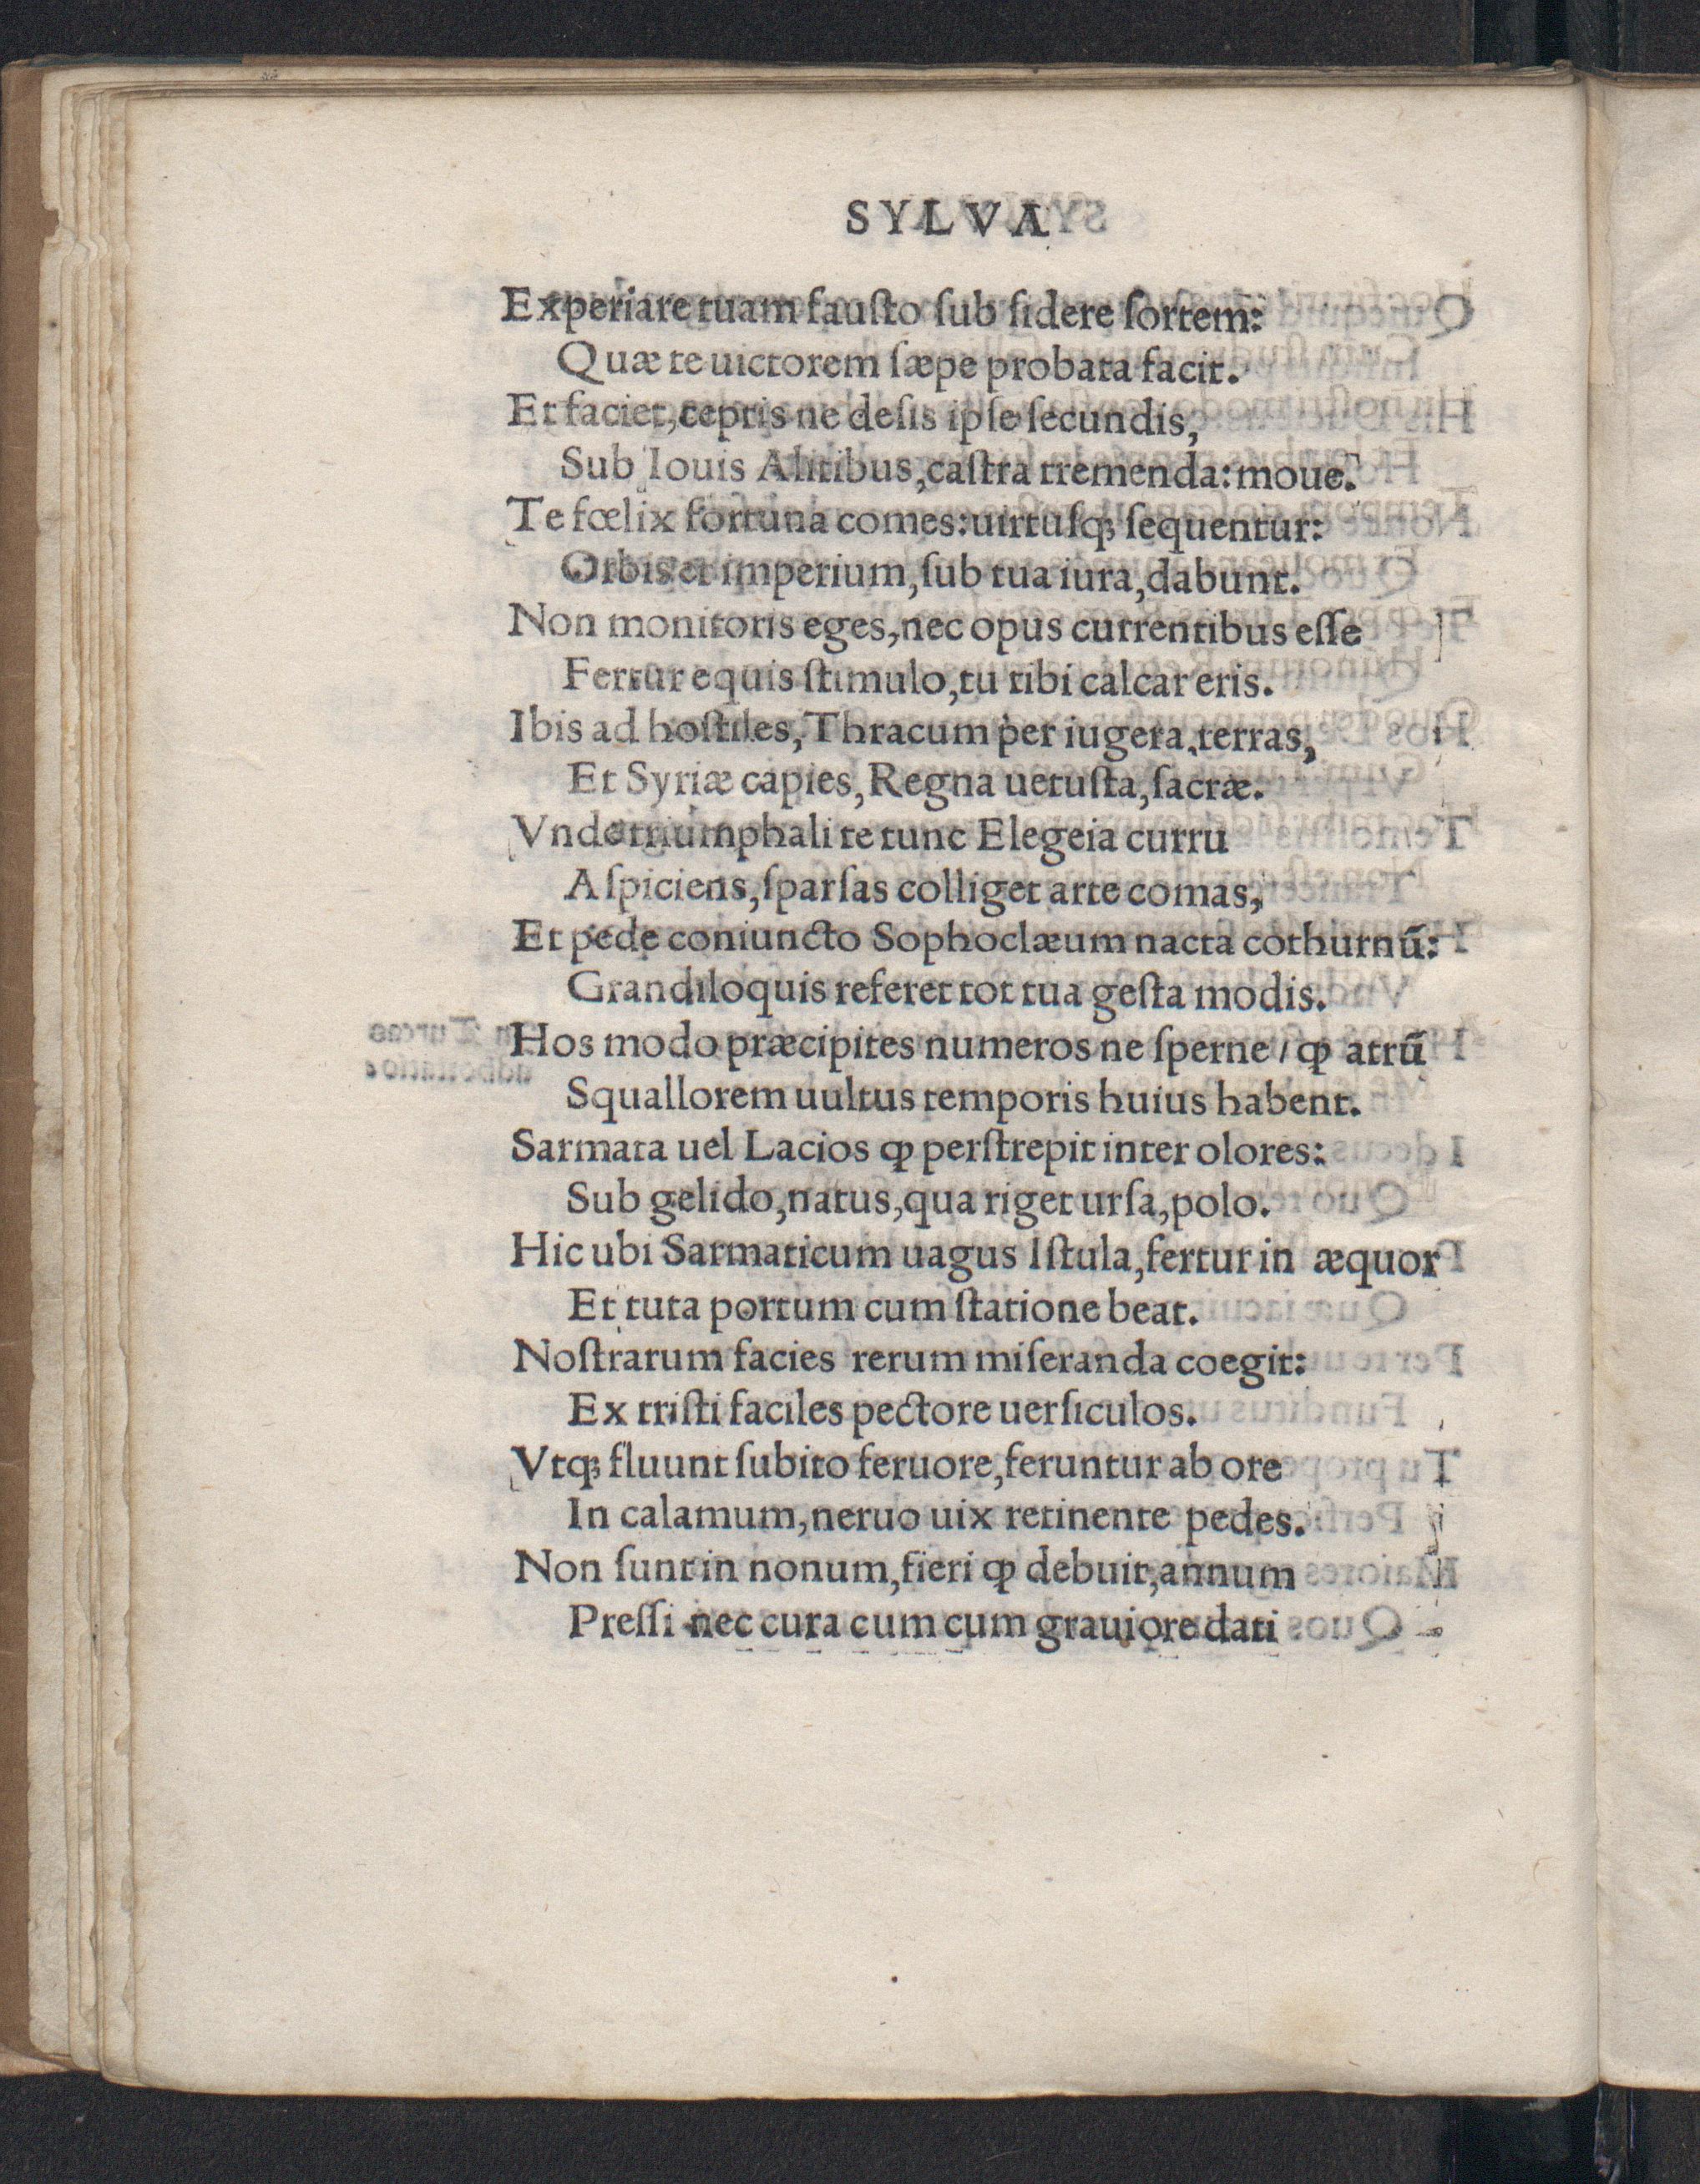 SYLVA
Experiare tuam fauſto ſub ſidere ſortem:
Quæ te uictorem ſæpe probata facit.
Et faciet, ceptis ne deſis ipſe ſecundis,
Sub Iouis Alitibus, caſtra tremenda: moue.
Te fœlix fortuna comes: uirtuſqꝫ ſequentur:
Orbis et imperium, ſub tua iura, dabunt.
Non monitoris eges, nec opus currentibus eſſe
Fertur equis ſtimulo, tu tibi calcar eris.
Ibis ad hoſtiles, Thracum per iugera, terras,
Et Syriæ capies, Regna uetuſta, ſacræ.
Vnde triumphali te tunc Elegeia curru
Aſpiciens, ſparſas colliget arte comas,
Et pede coniuncto Sophoclæum nacta cothurnū:
Grandiloquis referet tot tua geſta modis.
Hos modo præcipites numeros ne ſperne / ꝙ atrū
Squallorem uultus temporis huius habent.
Sarmata uel Lacios ꝙ perſtrepit inter olores:
Sub gelido, natus, qua riget urſa, polo.
Hic ubi Sarmaticum uagus Iſtula, fertur in æquor
Et tuta portum cum ſtatione beat.
Noſtrarum facies rerum miſeranda coegit:
Ex triſti faciles pectore uerſiculos.
Vtqꝫ fluunt ſubito feruore, feruntur ab ore
In calamum, neruo uix retinente pedes.
Non ſunt in nonum, fieri ꝙ debuit, annum
Preſſi nec cura cum cum grauiore dati